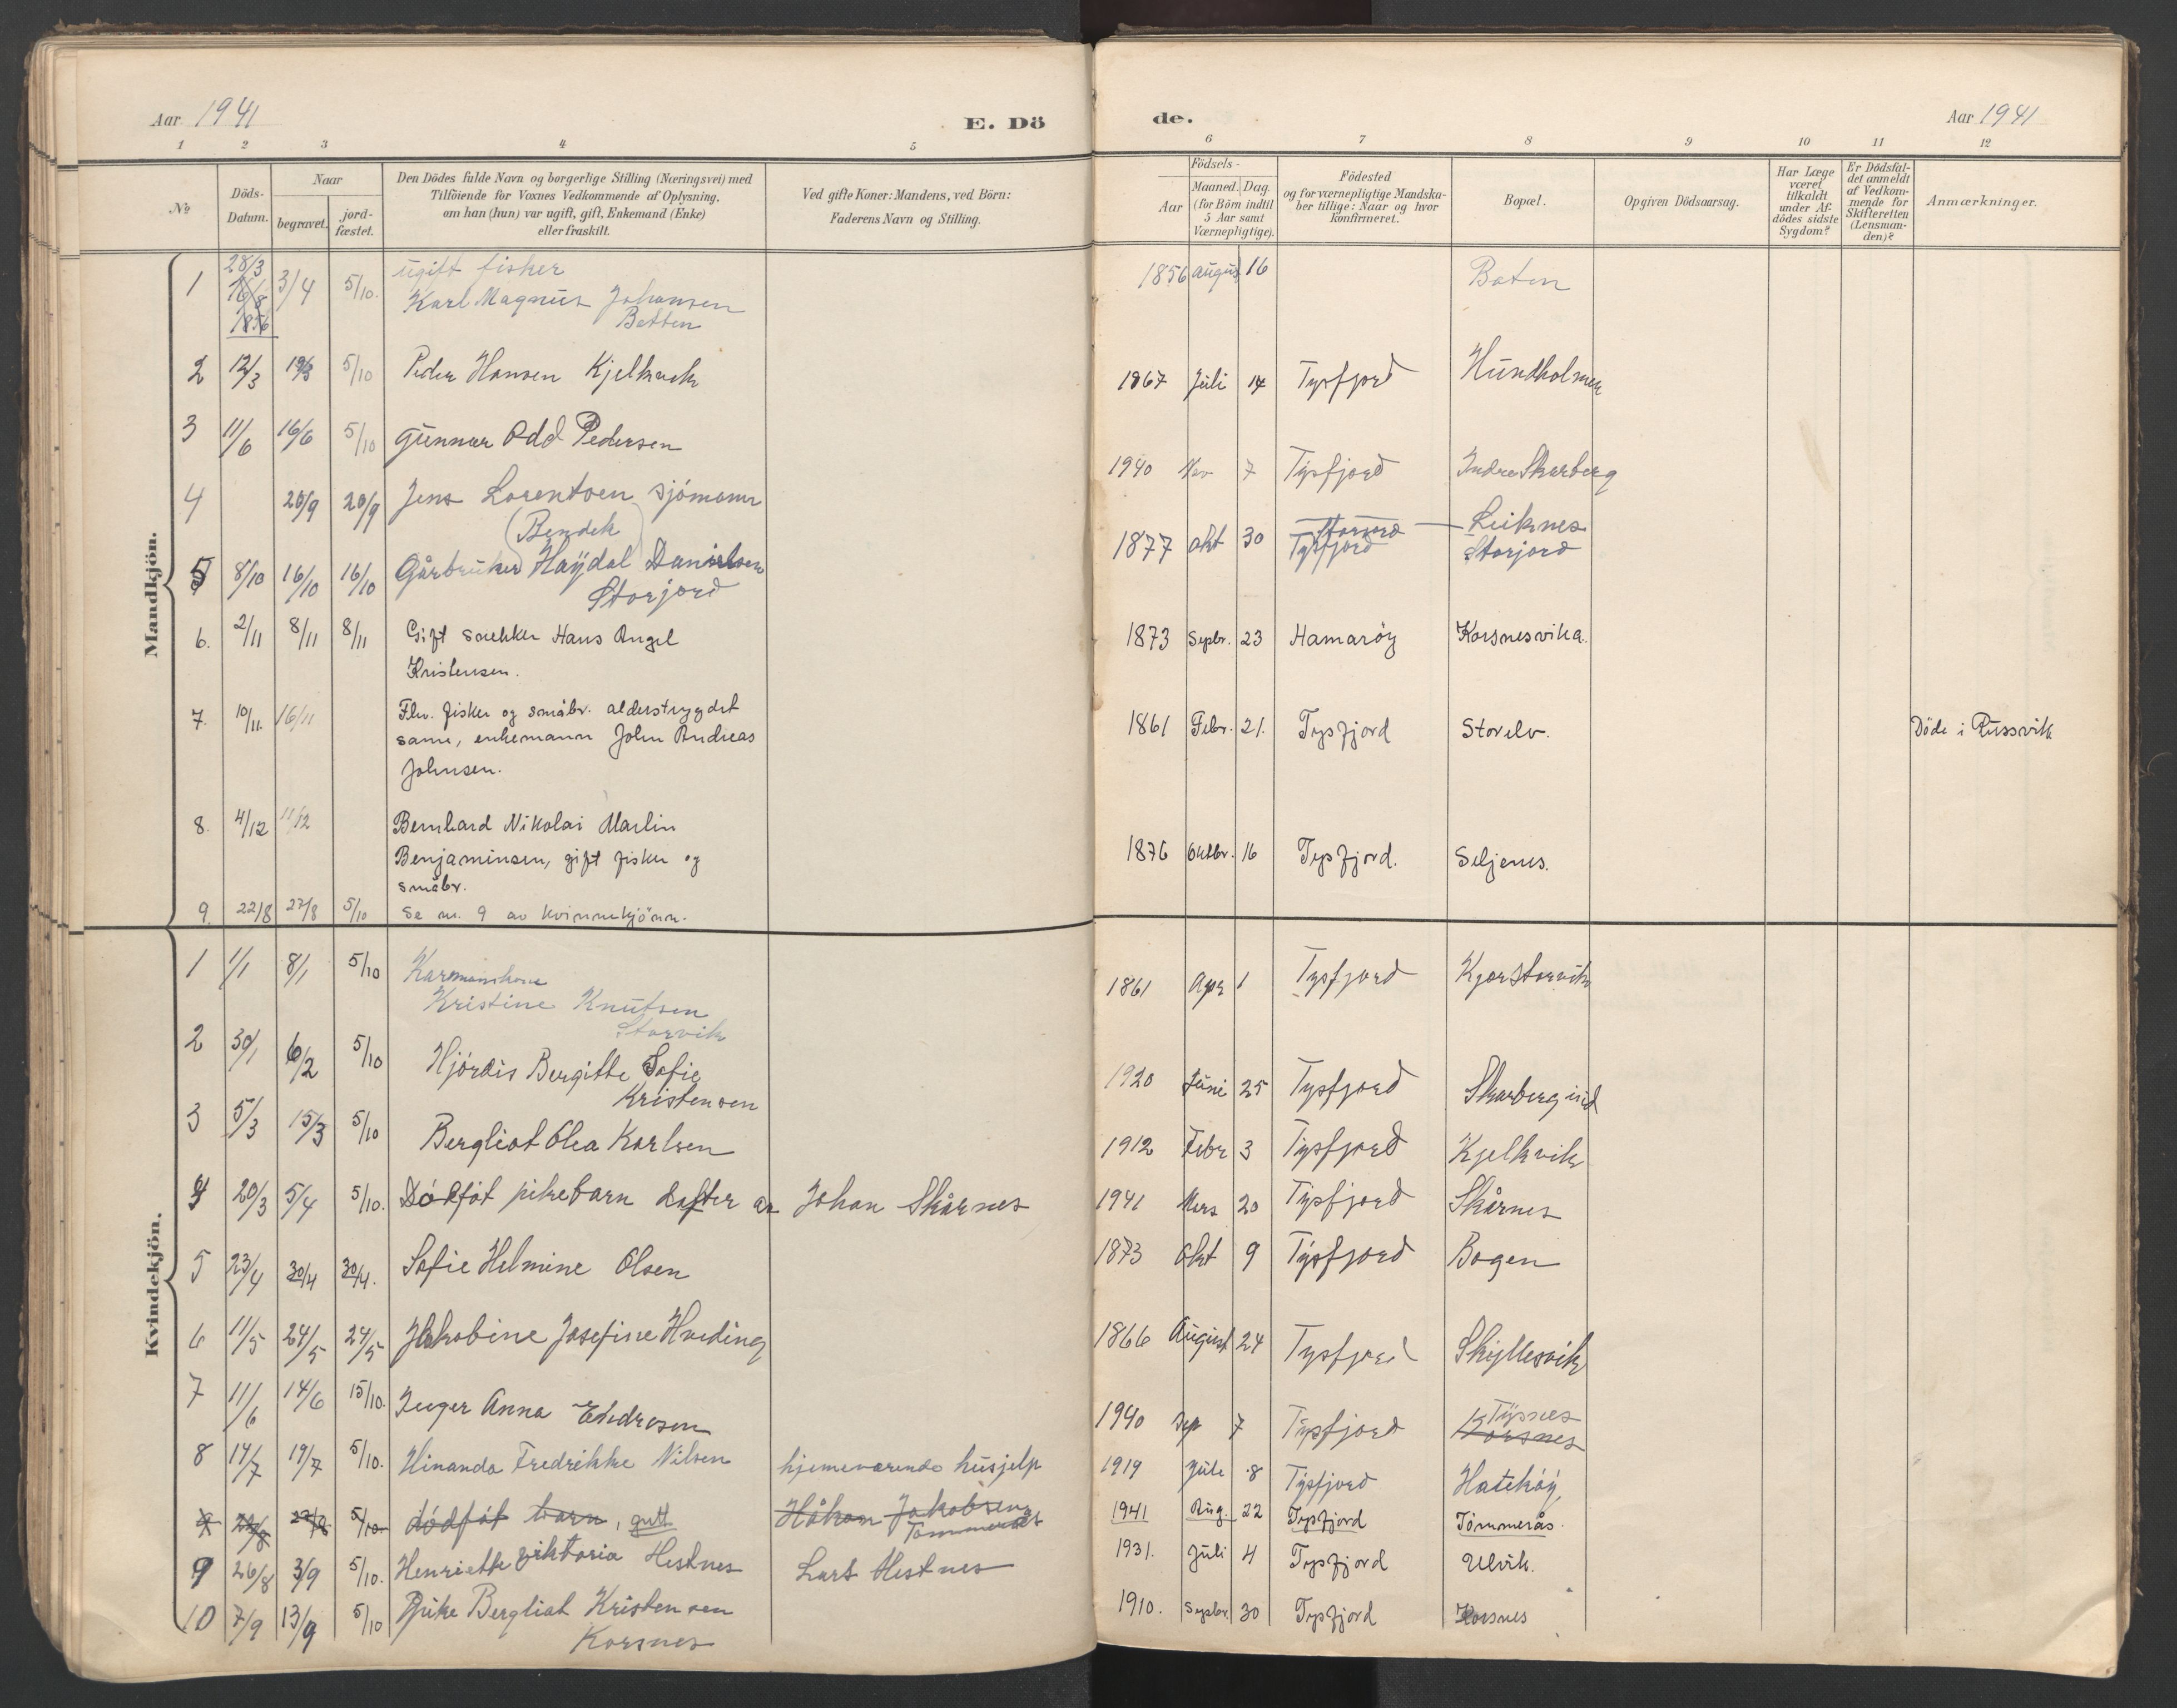 Aar 1941
E. Dö
de.
Aar 1941
1 2 3 4 5 6 7 8 9 10 11 12
No
Döds-
Datum.
Naar
begravet.
jord-
fæstet.
Den Dödes fulde Navn og borgerlige Stilling (Næringsvei) med
Tilföiende for Voxnes Vedkommende af Oplysning,
om han (hun) var ugift, gift, Enkemand (Enke)
eller fraskilt.
Ved gifte Koner: Mandens, ved Börn:
Faderens Navn og Stilling.
Födsels-
Aar
Maaned. Dag.
(for Börn indtil
5 Aar samt
Værnepligtige).
Födested
og for værnepligtige Mandska-
ber tillige: Naar og hvor
konfirmeret.
Bopæl.
Opgiven Dödsaarsag.
Har Læge
været
tilkaldt
under Af-
dödes sidste
Sygdom?
Er Dödsfal-
det anmeldt
af Vedkom-
mende for
Skifteretten
(Lensman-
den)?
Anmærkninger.
Mandkjön.
1 28/3 3/4 5/10. ugift fisker 1856 august 16 Boten
16/8
1856
Karl Magnus Johansen
Botten
2 12/3 19/3 5/10 Peder Hansen Kjelkvik 1867 Juli 14 Tysfjord Hundholmen
3 11/6 16/6 5/10 Gunnar Odd Pedersen 1940 Nov 7 Tysfjord Indre Skarberg
4 20/9 20/9 Jens Lorentsen sjömann 1877 okt 30 Tysfjord Leiknes
(Bendek)
Storjord
Storjord
5 8/10 16/10 16/10 Gårbruker Høydal Danielsen
Storjord
6. 2/11 8/11 8/11 Gift snekker Hans Angel 1873 Sepbr. 23 Hamaröy Korsnesvika.
Kristensen.
7. 10/11. 16/11 Flv. fisker og småbr. alderstrygdet 1861 Febr. 21. Tysfjord Storelv. Döde i Russvik
same, enkemann John Andreas
Johnsen.
8. 4/12 11/12 Bernhard Nikolai Martin 1876 Oktbr. 16 Tysfjord. Seljenes.
Benjaminsen, gift fisker og
småbr.
9. 22/8 27/8 5/10 Se nr. 9 av kvinnekjönn.
Kvindekjön.
1 1/1 8/1 5/10 Karmannskone 1861 Apr 1 Tysfjord Kjær Storvik
Kristine Knutsen
Storvik
2 30/1 6/2 5/10 Hjördis Bergitte Sofie 1920 Juni 25 Tysfjord
Kristensen
3 5/3 15/3 5/10 Bergliot Olea Karlsen 1912 Febr 3 Tysfjord Kjelkvik
4 20/3 5/4 5/10. Dödföt pikebarn datter av Johan Skårnes 1941 Mars 20 Tysfjord Skårnes
5 23/4 30/4 30/4. Sofie Helmine Olsen 1873 Okt 9 Tysfjord Bogen
6 11/5 24/5 24/5 Jakobine Josefine Hveding 1866 August 24 Tysfjord Skjellesvik
7 11/6 14/6 15/10. Inger Anna Endresen 1940 Sep 7 Tysfjord Tysnes
Korsnes
8 14/7 19/7 5/10. Hinanda Fredrikke Nilsen hjemeværende husjelp 1919 Jule 8 Tysfjord Hatehöy
9 22/8 27/8 5/10. dödföt barn, gutt Håkon Jakobsens 1941 Aug. 22 Tysfjord Tömmerås.
Tommerås
9 26/8 3/9 5/10. Henriette Viktoria Hestnes Lars Hestnes 1931. Juli 4 Tysfjord Ulvik.
10 7/9 13/9 5/10 Pike Bergliot Kristensen 1910. Sepbr. 30 Tysfjord Korsnes
Korsnes